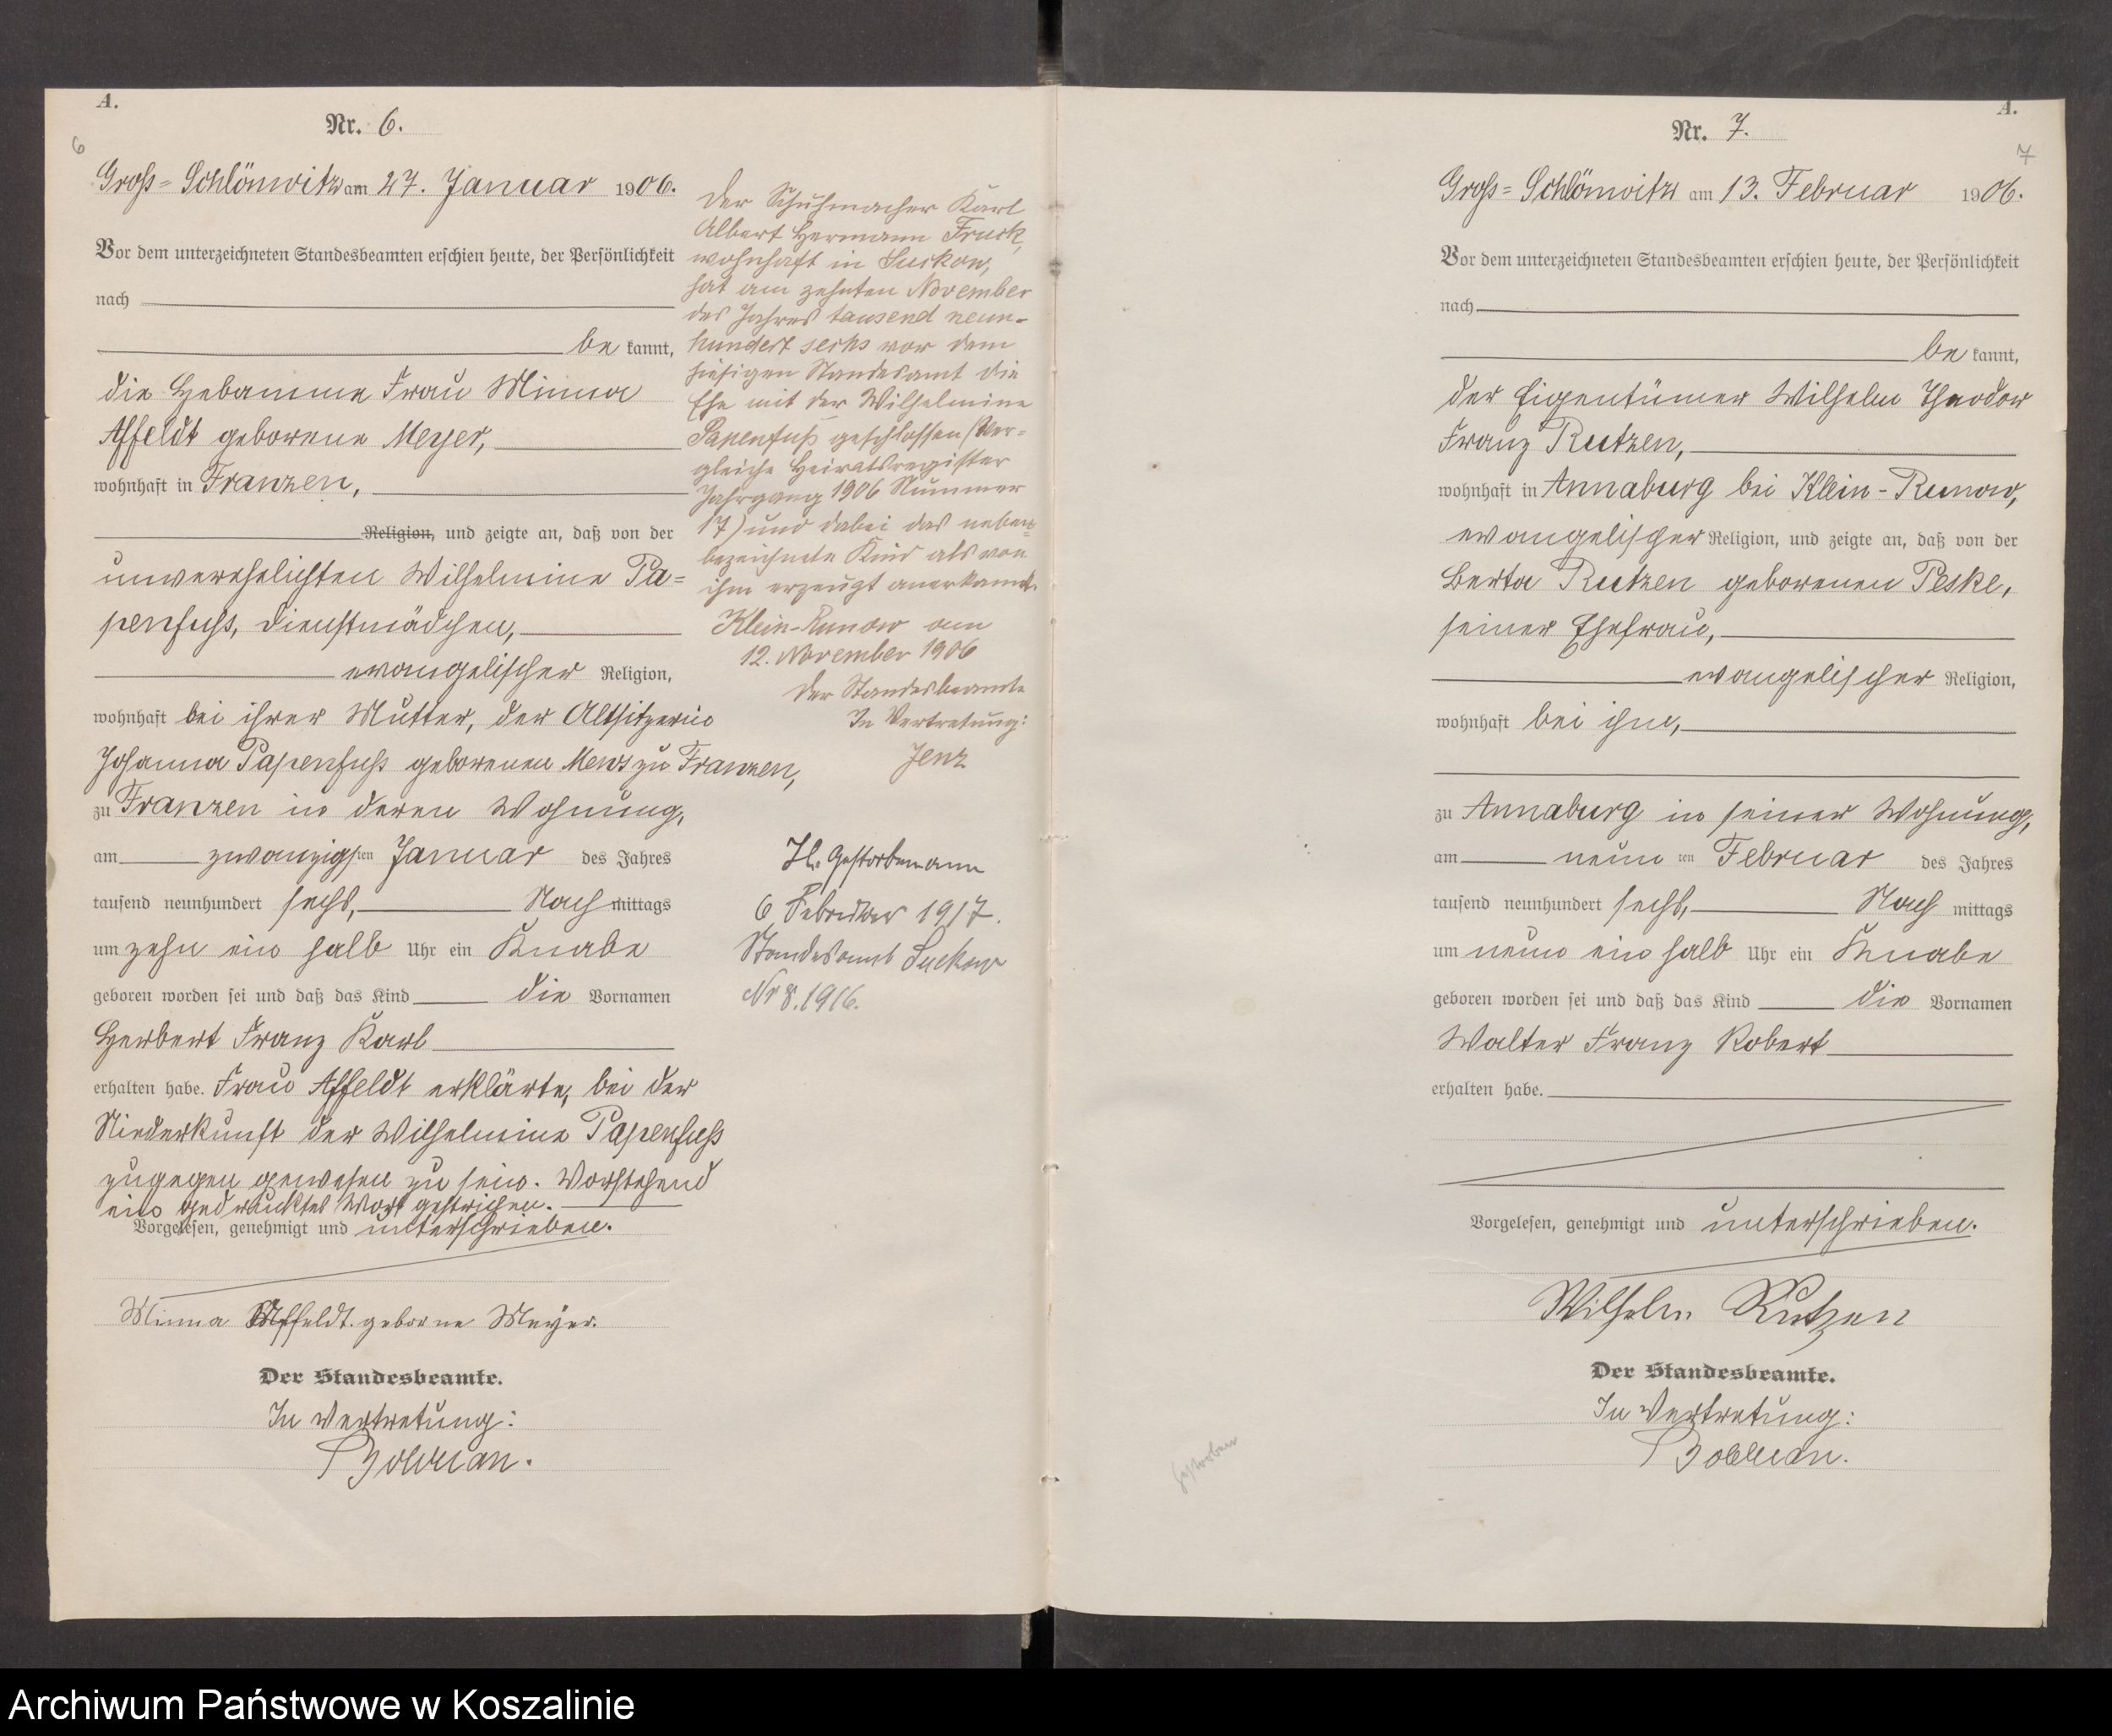 A.
Nr. 6.
6
Gross=Schlönwitz am 27. Januar 1906.
Vor dem unterzeichneten Standesbeamten erschien heute, der Persönlichkeit
nach
be kannt,
die Hebamme Frau Minna
Affeldt geborene Meyer,
wohnhaft in Franzen,
Religion, und zeigte an, daß von der
unverehelichten Wilhelmine Pa=
penfuss, Dienstmädchen,
evangelischer Religion,
wohnhaft bei ihrer Mutter, der Altsitzerin
Johanna Papenfuss geborenen Mews zu Franzen,
zu Franzen in deren Wohnung,
am zwanzigsten Januar des Jahres
tausend neunhundert sechs, Nach mittags
um zehn ein halb Uhr ein Knabe
geboren worden sei und daß das Kind die Vornamen
Herbert Franz Karl
erhalten habe. Frau Affeldt erklärte, bei der
Niederkunft der Wilhelmine Papenfuss
zugegen gewesen zu sein. Vorstehend
ein gedrucktes Wort gestrichen.
Vorgelesen, genehmigt und unterschrieben.
Minna Affeldt. geborne Meyer.
Der Standesbeamte.
In Vertretung:
Der Schuhmacher Karl
Albert Hermann Fruck,
wohnhaft in Suckow,
hat am zehnten November
des Jahres tausend neun=
hundert sechs vor dem
hiesigen Standesamt die
Ehe mit der Wilhelmine
Papenfuß geschlossen (Ver=
gleiche Heiratsregister
Jahrgang 1906 Nummer
17) und dabei das neben=
bezeichnete Kind als von
ihm erzeugt anerkannt.
Klein-Runow am
12. November 1906
Der Standesbeamte
In Vertretung:
Jenz
Gestorben am
6 Februar 1917.
Standesamt Suckow
Nr 8. 1916.
A.
Nr. 7.
7
Gross=Schlönwitz am 13. Februar 1906.
Vor dem unterzeichneten Standesbeamten erschien heute, der Persönlichkeit
nach
be kannt,
der Eigentümer Wilhelm Theodor
Franz Rutzen,
wohnhaft in Annaburg bei Klein-Runow,
evangelischer Religion, und zeigte an, daß von der
Berta Rutzen geborenen Peske,
seiner Ehefrau,
evangelischer Religion,
wohnhaft bei ihm,
zu Annaburg in seiner Wohnung,
am neun ten Februar des Jahres
tausend neunhundert sechs, Nach mittags
um neun ein halb Uhr ein Knabe
geboren worden sei und daß das Kind die Vornamen
Walter Franz Robert
erhalten habe.
Vorgelesen, genehmigt und unterschrieben.
Wilhelm Rutzen
Der Standesbeamte.
In Vertretung:
gestorben
Archiwum Państwowe w Koszalinie